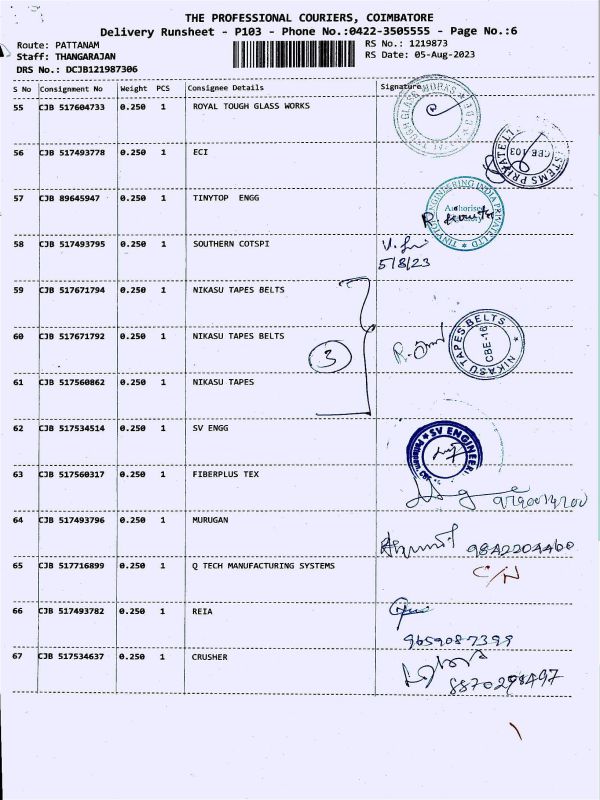 THE PROFESSIONAL COURIERS, COIMBATORE
Delivery Runsheet - P103 - Phone No.:0422-3505555 - Page No.:6
Route: PATTANAM RS No.: 1219873
Staff: THANGARAJAN RS Date: 05-Aug-2023
DRS No.: DCJB121987306
S No Consignment No Weight PCS Consignee Details Signature
55 CJB 517604733 0.250 1 ROYAL TOUGH GLASS WORKS
56 CJB 517493778 0.250 1 ECI
57 CJB 89645947 0.250 1 TINYTOP ENGG
58 CJB 517493795 0.250 1 SOUTHERN COTSPI
5/8/23
59 CJB 517671794 0.250 1 NIKASU TAPES BELTS
60 CJB 517671792 0.250 1 NIKASU TAPES BELTS
3
NIKASU TAPES BELTS
CBE-16
61 CJB 517560862 0.250 1 NIKASU TAPES
62 CJB 517534514 0.250 1 SV ENGG
63 CJB 517560317 0.250 1 FIBERPLUS TEX
64 CJB 517493796 0.250 1 MURUGAN
9842204460
65 CJB 517716899 0.250 1 Q TECH MANUFACTURING SYSTEMS
C/N
66 CJB 517493782 0.250 1 REIA
9659087399
67 CJB 517534637 0.250 1 CRUSHER
8870298497